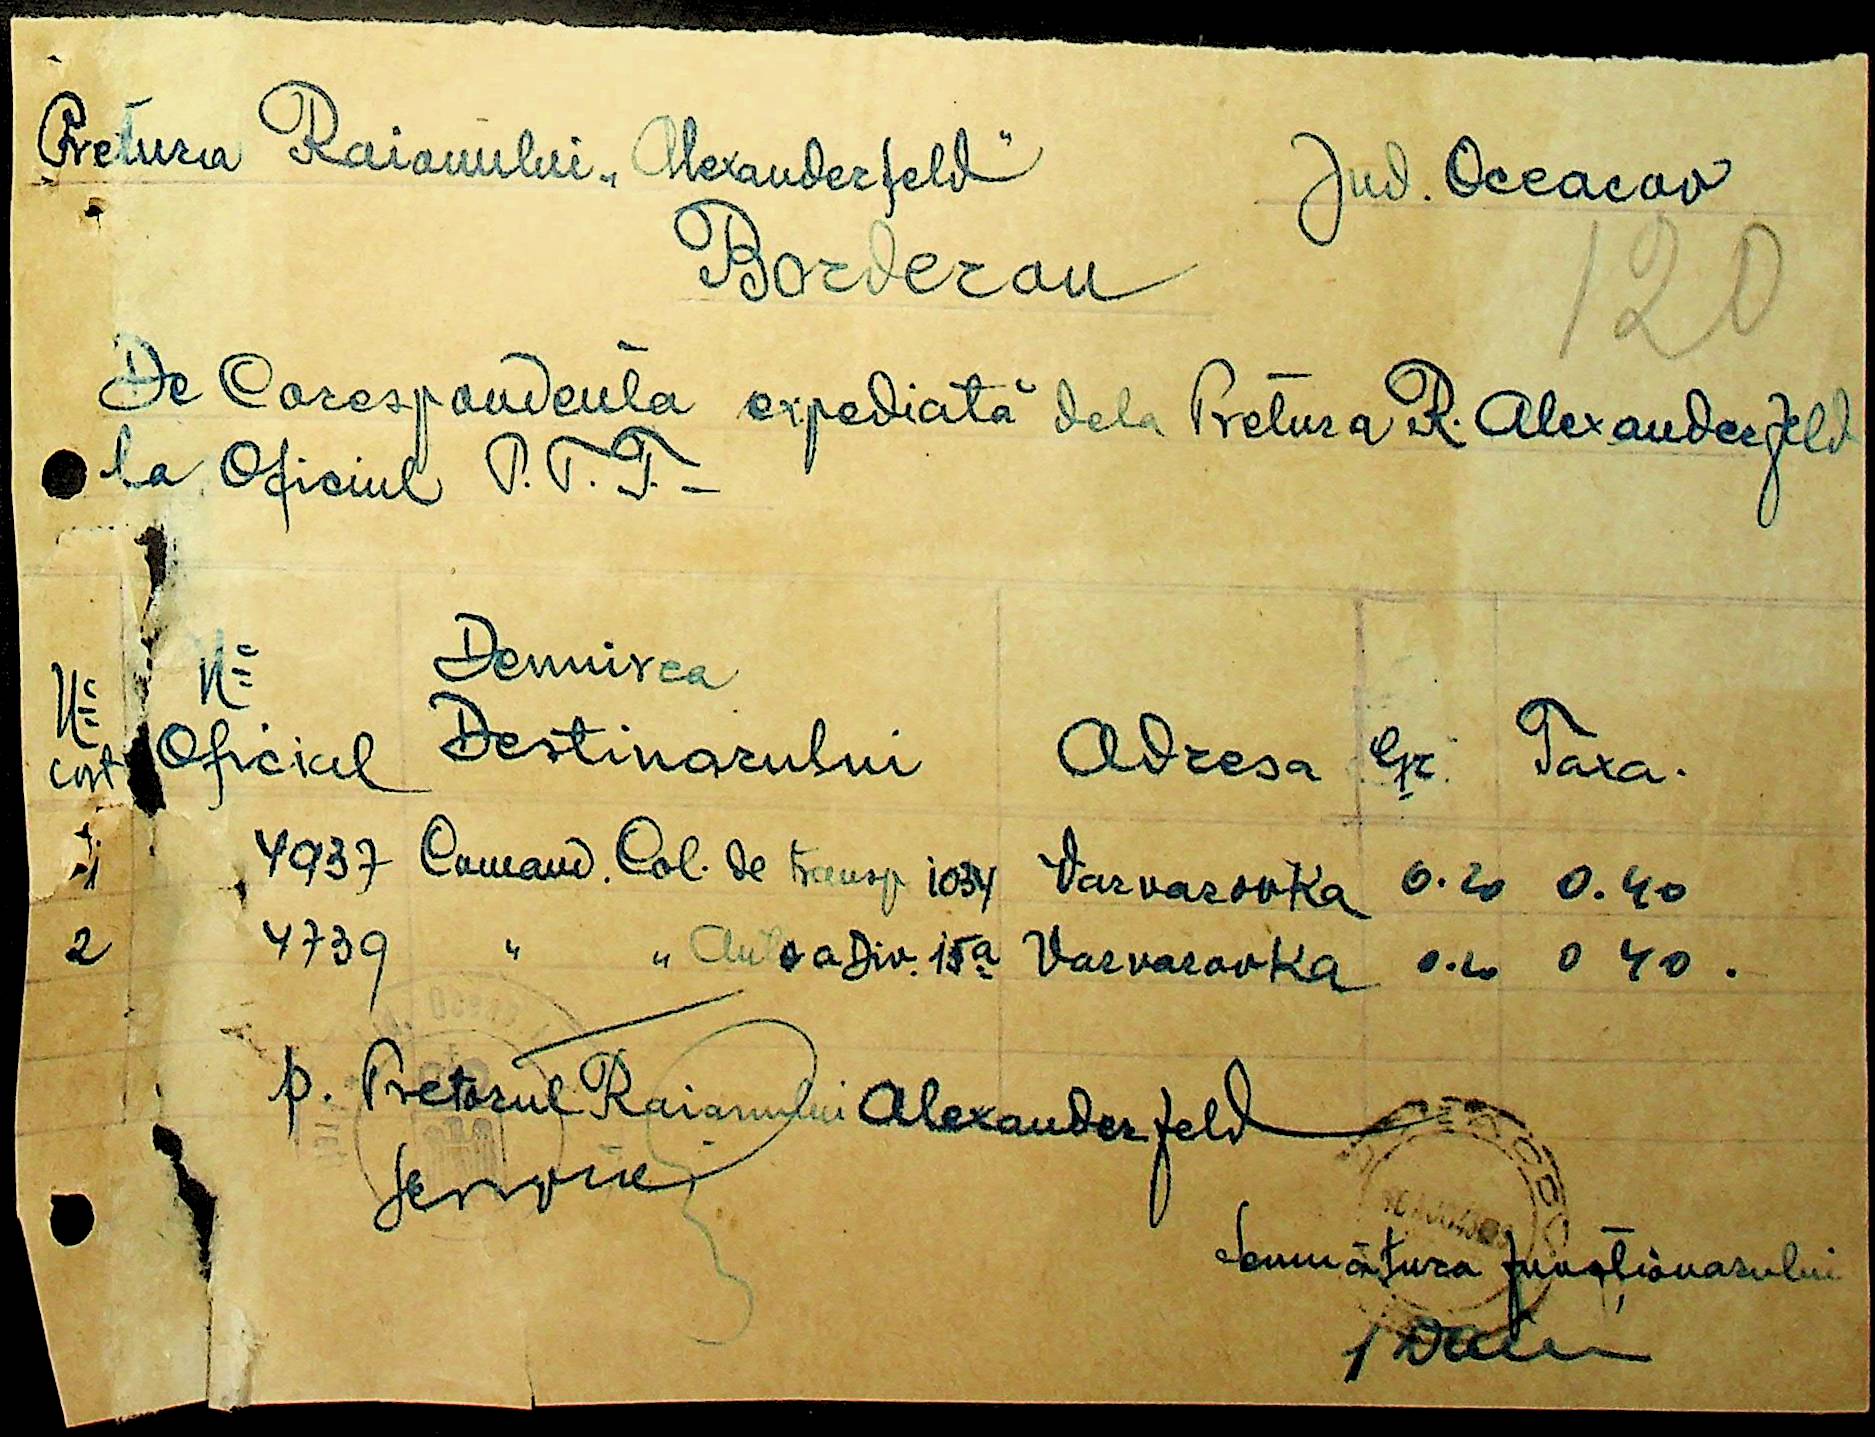 Pretura Raionului „Alexanderfeld” Jud. Oceacov
120
Borderou
De Corespondența expediată dela Pretura R. Alexanderfeld
la Oficiul P.T.T. –
No cert No Oficial Denmirea Destinarului Adresa Gr. Taxa.
1 4937 Comand. Col. de transp 1034 Varvarovka 0.20 0.40
2 4739 " " Auto a Div. 15a Varvarovka 0.20 0 40.
p. Pretorul Raionului Alexanderfeld
Semnătura funcționarului